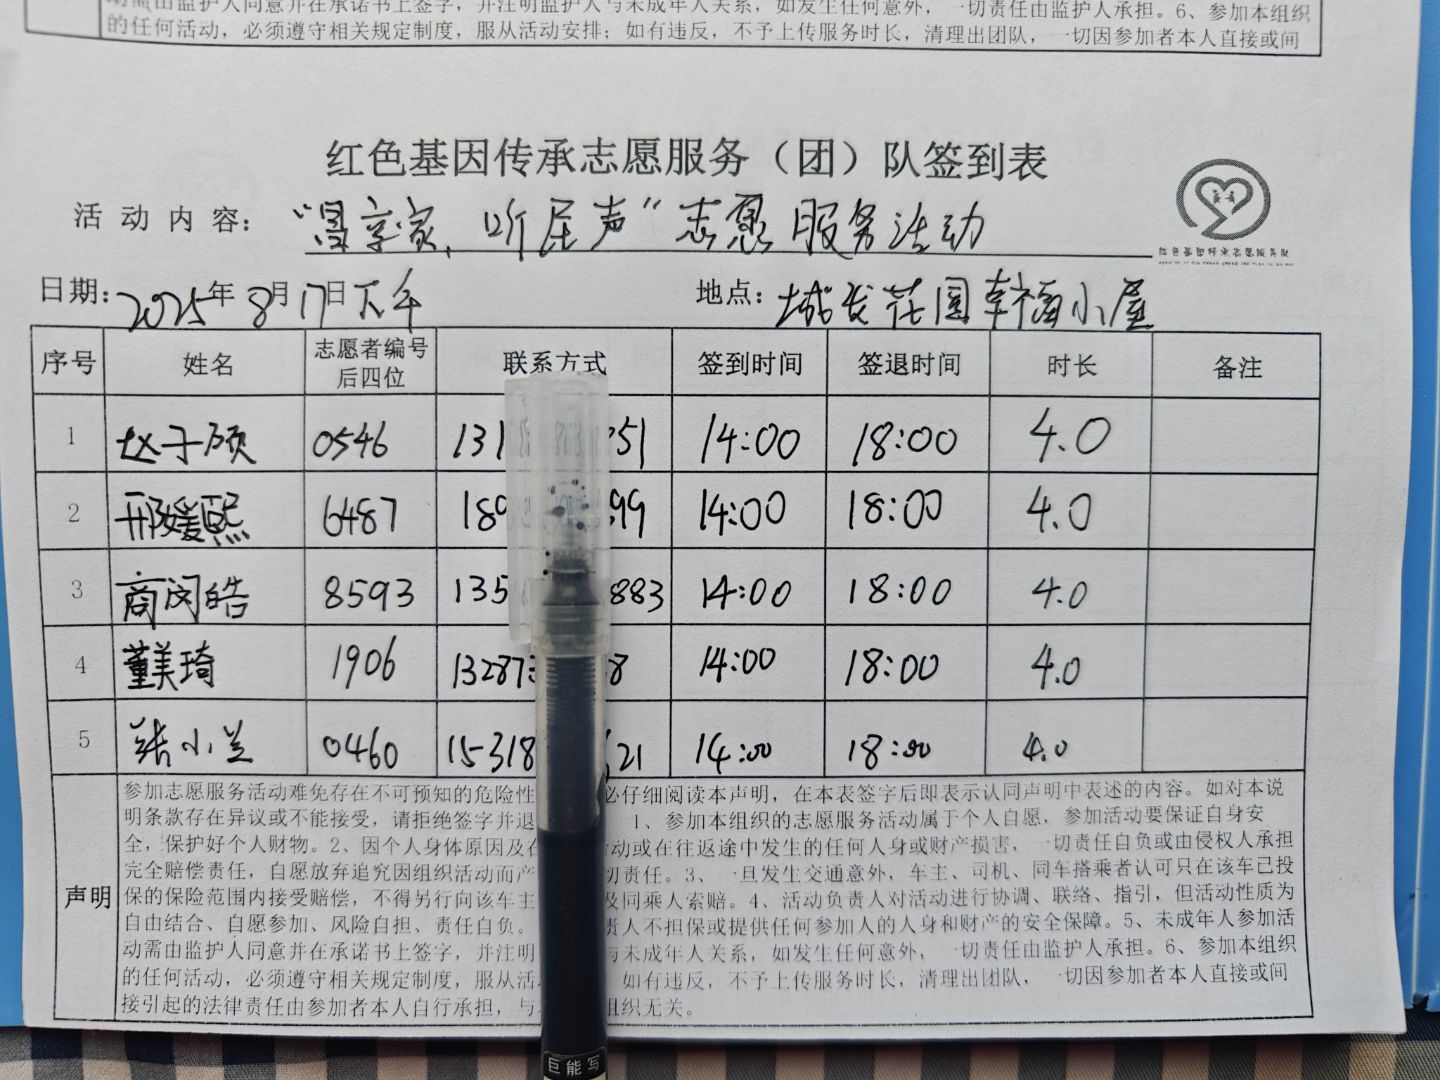 动需由监护人同意并在承诺书上签字，并注明监护人与未成年人关系，如发生任何意外，一切责任由监护人承担。6、参加本组织
的任何活动，必须遵守相关规定制度，服从活动安排；如有违反，不予上传服务时长，清理出团队，一切因参加者本人直接或间
红色基因传承志愿服务（团）队签到表
活动内容： 家，听 声”志愿服务活动
红色基因传承志愿服务队
日期：2025年8月17日下午 地点：城发花园幸福小屋
序号 姓名 志愿者编号后四位 联系方式 签到时间 签退时间 时长 备注
1 赵子硕 0546 131 351 14:00 18:00 4.0
2 邢媛熙 6487 189 99 14:00 18:00 4.0
3 商闵皓 8593 135 883 14:00 18:00 4.0
4 董美琦 1906 13287 8 14:00 18:00 4.0
5 张小兰 0460 15318 21 14:00 18:00 4.0
声明
参加志愿服务活动难免存在不可预知的危险性 必仔细阅读本声明，在本表签字后即表示认同声明中表述的内容。如对本说
明条款存在异议或不能接受，请拒绝签字并退 1、参加本组织的志愿服务活动属于个人自愿，参加活动要保证自身安
全，保护好个人财物。2、因个人身体原因及在 动或在往返途中发生的任何人身或财产损害，一切责任自负或由侵权人承担
完全赔偿责任，自愿放弃追究因组织活动而产 切责任。3、一旦发生交通意外，车主、司机、同车搭乘者认可只在该车已投
保的保险范围内接受赔偿，不得另行向该车主 及同乘人索赔。4、活动负责人对活动进行协调、联络、指引，但活动性质为
自由结合、自愿参加、风险自担、责任自负。 责人不担保或提供任何参加人的人身和财产的安全保障。5、未成年人参加活
动需由监护人同意并在承诺书上签字，并注明 与未成年人关系，如发生任何意外，一切责任由监护人承担。6、参加本组织
的任何活动，必须遵守相关规定制度，服从活 如有违反，不予上传服务时长，清理出团队，一切因参加者本人直接或间
接引起的法律责任由参加者本人自行承担，与 组织无关。
巨能写